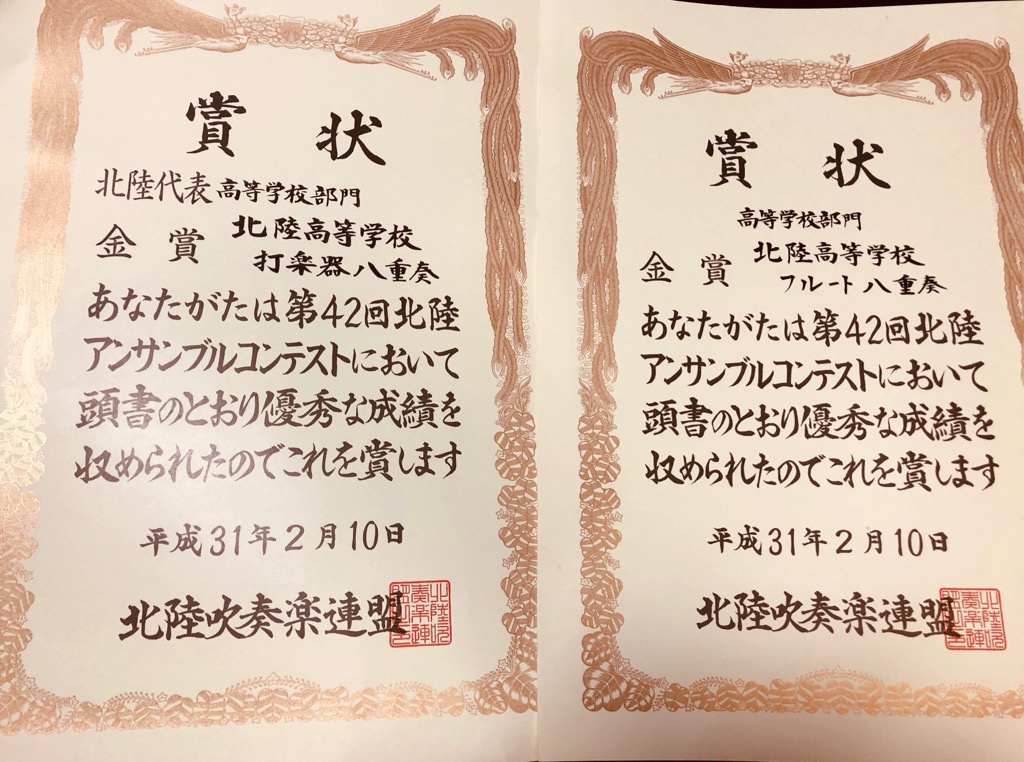 賞状
北陸代表 高等学校部門
金賞 北陸高等学校
打楽器八重奏
あなたがたは第42回北陸
アンサンブルコンテストにおいて
頭書のとおり優秀な成績を
収められたのでこれを賞します
平成31年2月10日
北陸吹奏楽連盟
賞状
高等学校部門
金賞 北陸高等学校
フルート八重奏
あなたがたは第42回北陸
アンサンブルコンテストにおいて
頭書のとおり優秀な成績を
収められたのでこれを賞します
平成31年2月10日
北陸吹奏楽連盟